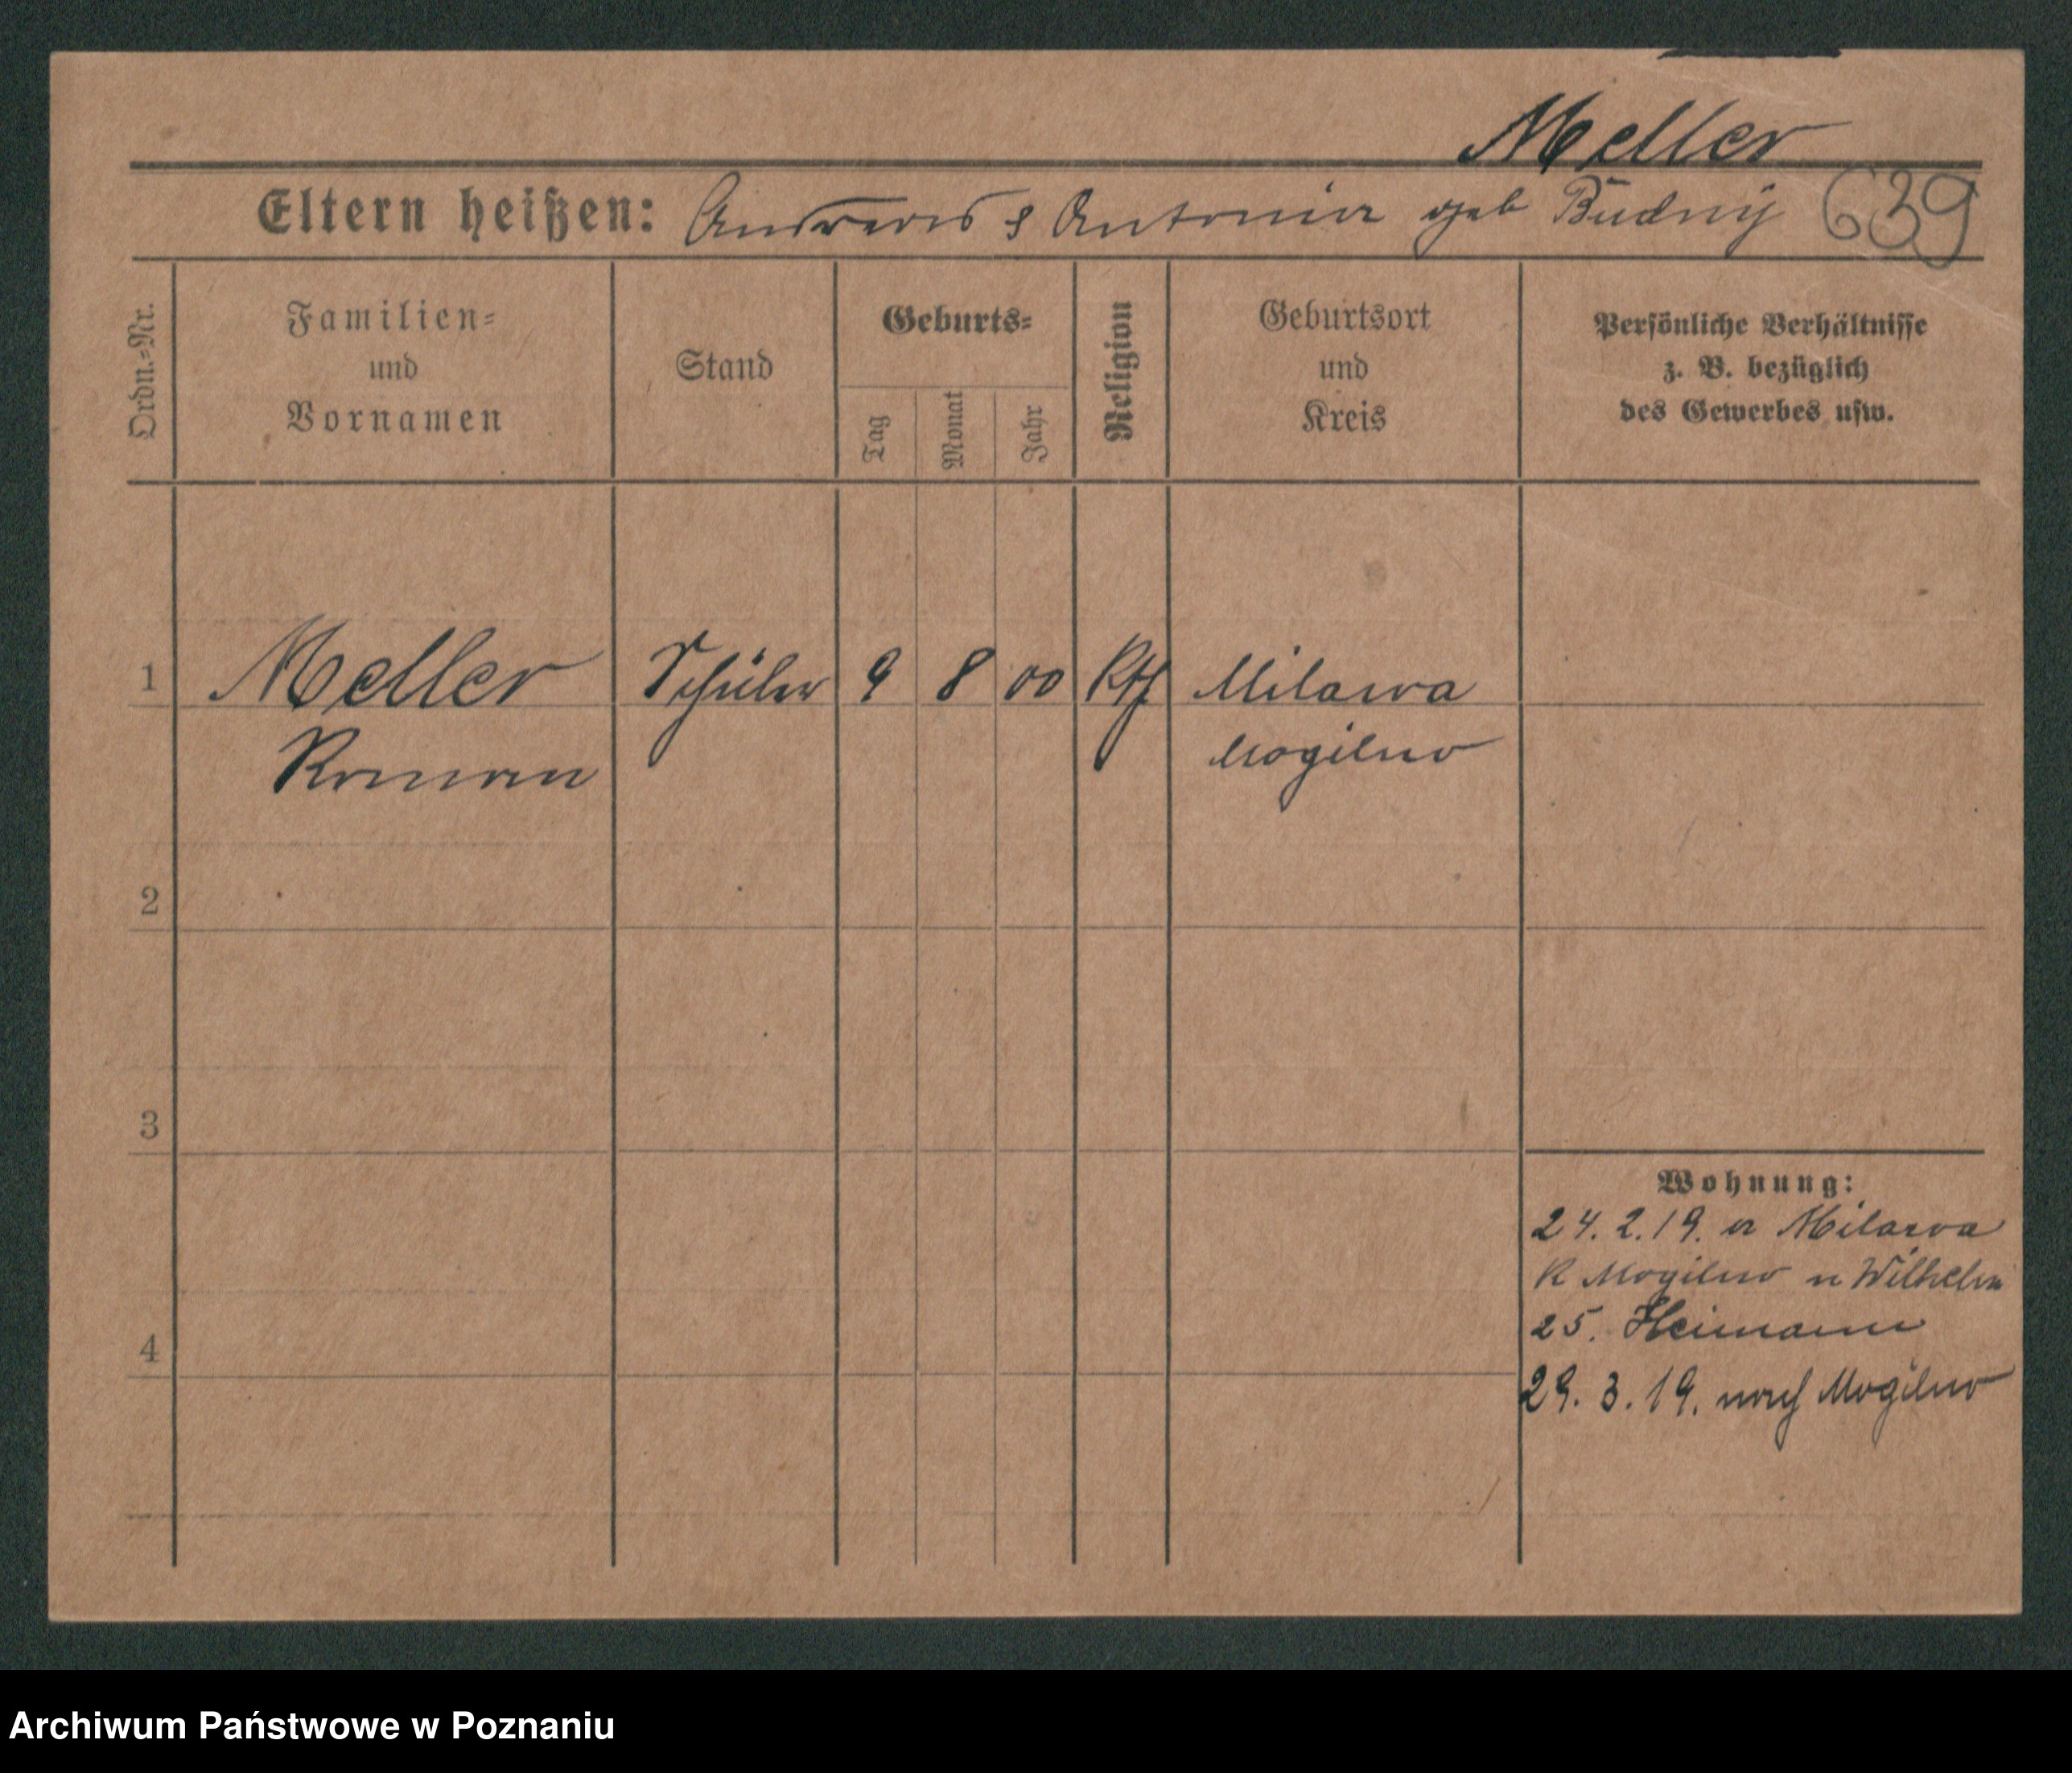 Meller
Eltern heißen: Andreas & Antonia geb Budny 639
Ordn.-Nr.
Familien-
und
Vornamen
Stand
Geburts-
Tag
Monat
Jahr
Religion
Geburtsort
und
Kreis
Persönliche Verhältnisse
z. B. bezüglich
des Gewerbes usw.
1 Meller Schüler 9 8 00 Kth Milawa
Roman Mogilno
2
3
4
Wohnung:
24. 2. 19. a Milawa
K Mogilno n Wilhelm
25. Heimann
29. 3. 19. nach Mogilno
Archiwum Państwowe w Poznaniu